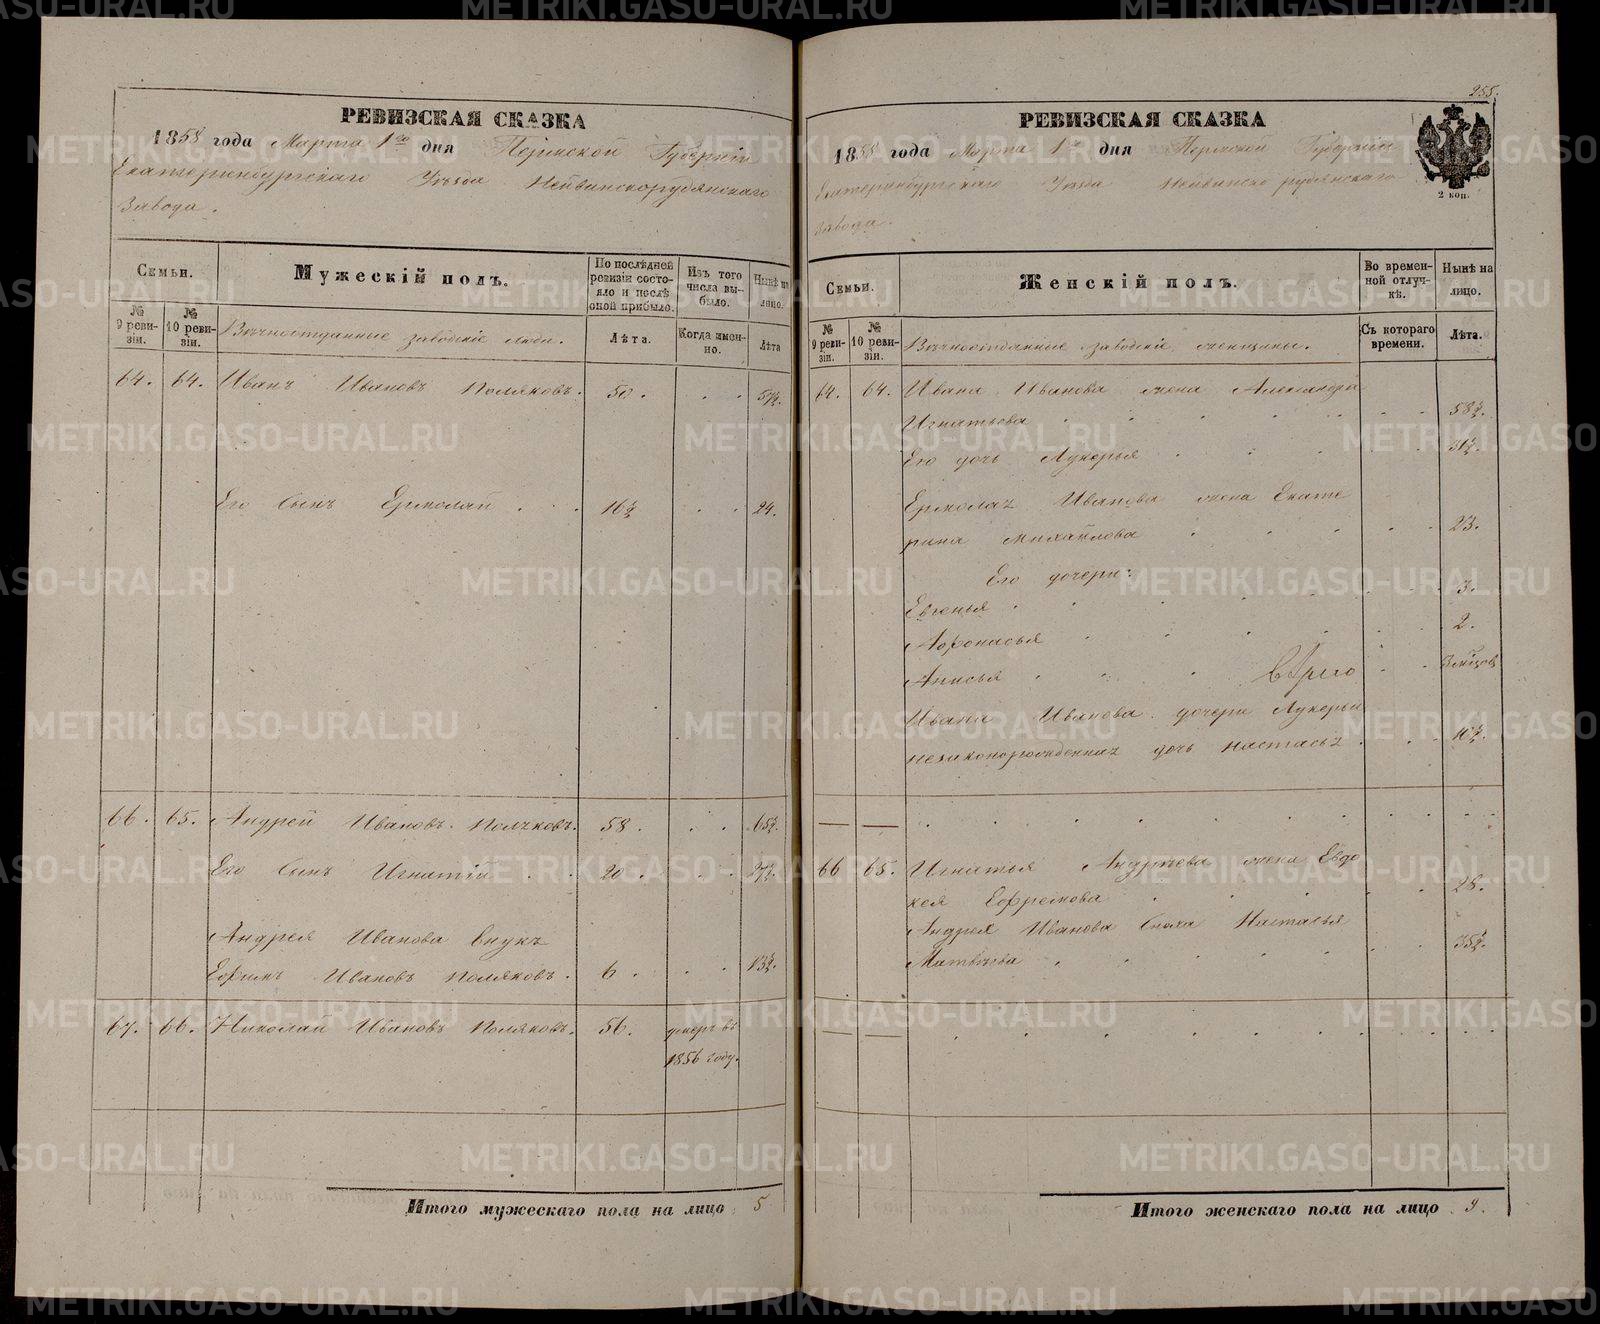 РЕВИЗСКАЯ СКАЗКА
1858 года Марта 1го дня Пермской Губерніи
Екатеринбургскаго Уѣзда Нейвинскорудянскаго
Завода.
Семьи.
Мужескій полъ.
По послѣдней ревизіи состояло и послѣ оной прибыло.
Изъ того числа выбыло.
Нынѣ на лицо.
№ 9 ревизіи.
№ 10 ревизіи.
Вѣчноотданные заводскіе люди.
Лѣта.
Когда именно.
Лѣта
64. 64. Иванъ Ивановъ Поляковъ. 50. 57½.
Его сынъ Ермолай 16½ 24.
66. 65. Андрей Ивановъ Поляковъ. 58. 65½.
Его сынъ Игнатій 20. 27½.
Андрея Иванова внукъ
Ефимъ Ивановъ Поляковъ. 6. 13½.
67. 66. Николай Ивановъ Поляковъ. 56. умеръ въ
1856 году.
Итого мужескаго пола на лицо 5
255.
РЕВИЗСКАЯ СКАЗКА
1858 года Марта 1го дня Пермской Губерніи
Екатеринбургскаго Уѣзда Нейвинско рудянскаго
завода.
2 коп.
Семьи.
Женскій полъ.
Во временной отлучкѣ.
Нынѣ на лицо.
№ 9 ревизіи.
№ 10 ревизіи.
Вѣчноотданные заводскіе женщины.
Съ котораго времени.
Лѣта.
64. 64. Ивана Иванова жена Александра
Игнатьева 58½.
Его дочь Лукерья 31½.
Ермолая Иванова жена Екате
рина Михайлова 23.
Его дочери:
Евгенья 3.
Афонасья 2.
Анисья 3 мѣсцов
Ивана Иванова дочери Лукерьи
незаконорожденная дочь Настасья 10½.
66 65. Игнатья Андреева жена Евдо
кея Ефремова 28.
Андрея Иванова сноха Настасья
Матвѣева 35½.
Итого женскаго пола на лицо 9.
METRIKI.GASO-URAL.RU